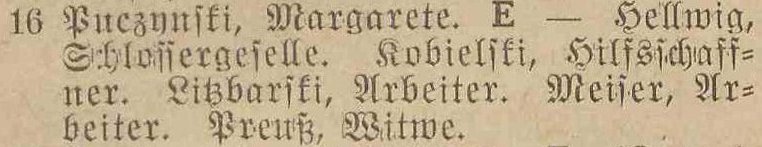 16 Puczynski, Margarete. E — Hellwig,
Schlossergeselle. Kobielski, Hilfsschaff-
ner. Litzbarski, Arbeiter. Meiser, Ar-
beiter. Preuß, Witwe.